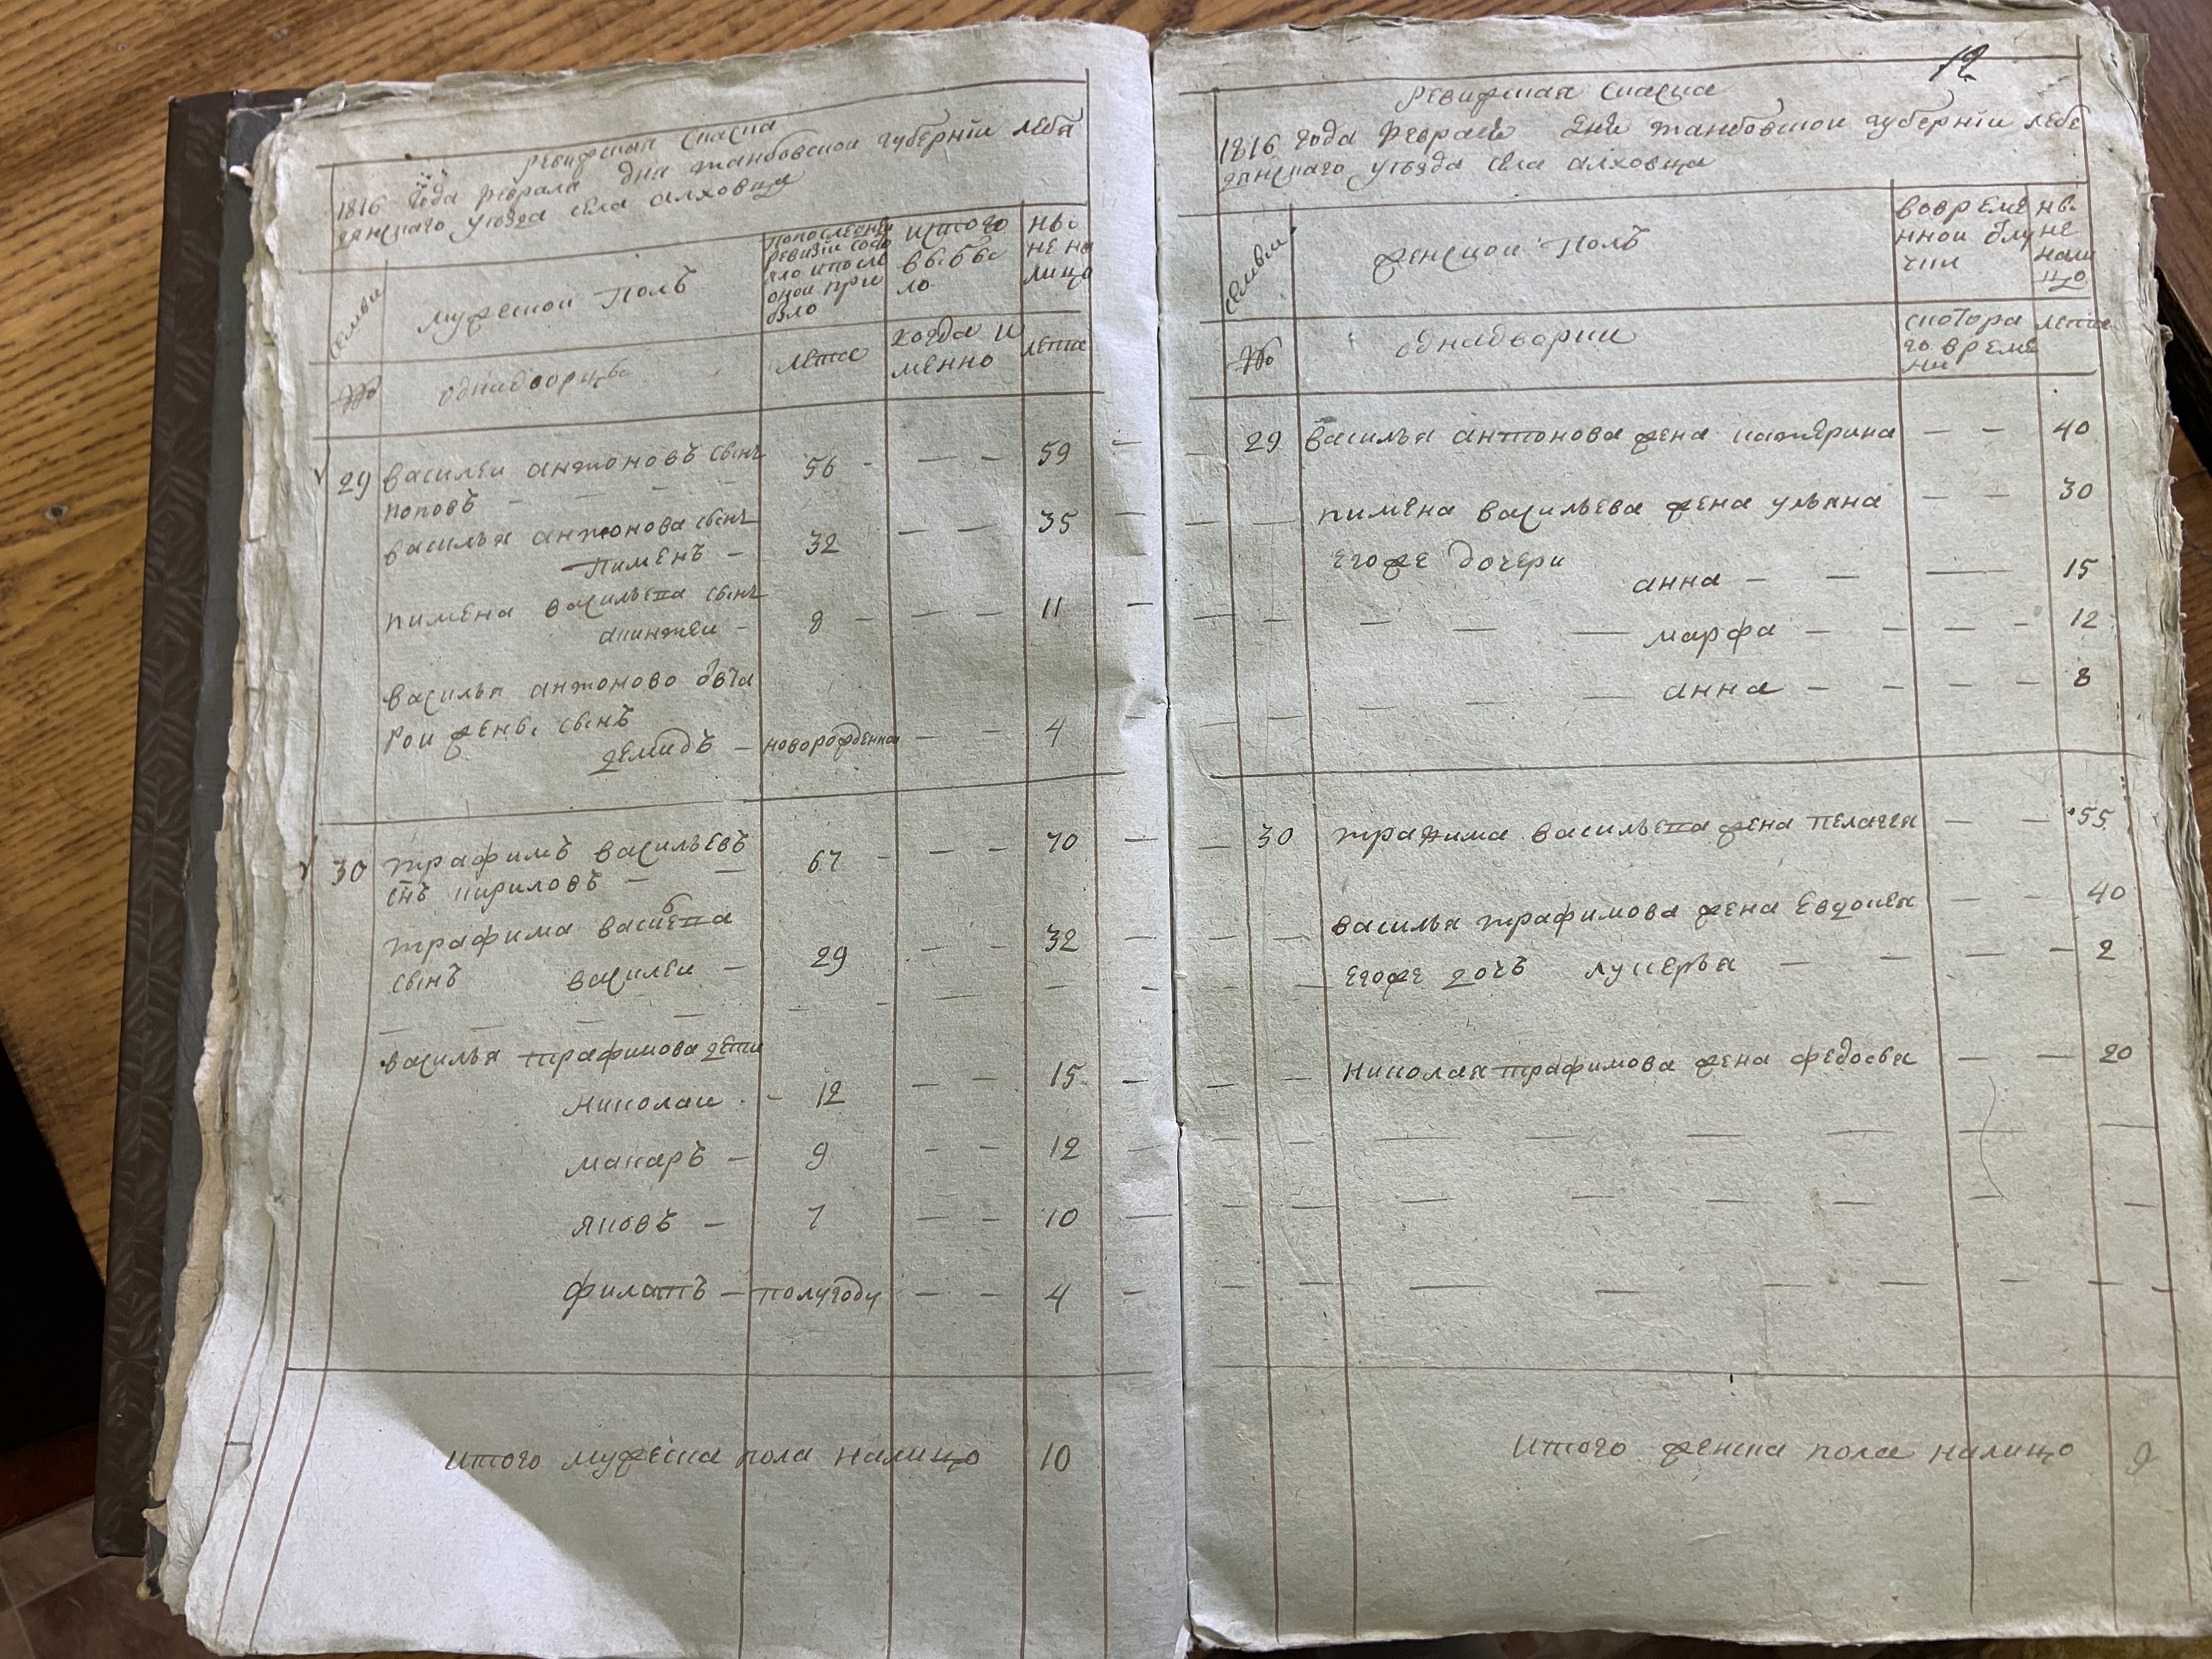 ревижская скаска
1816 года февраля дня танбовской губернїи леба
дянскаго уѣзда села алховца
семьи
мужескои полъ
попоследнеи
ревизїи состо
яло ипосле
оной при
было
истого
выбы
ло
ны
не на
лицо
№
однадворцы
лета
когда и
менно
лета
29 василеи антоновъ сынъ 56 - - - 59
поповъ - - - -
василья антонова сынъ
пименъ - 32 - - 35
пимена васильева сынъ
акинтеи - 8 - - - 11
василья антоново двѣа
рои жены сынъ
демидъ - новорожденнои - - 4
30 трафимъ васильевъ 67 - - - 70
снъ кириловъ - -
трафима васильева
сынъ василеи - 29 - - 32
василья трафимова дети
николаи - 12 - - 15
макаръ - 9 - - 12
яковъ - 7 - - 10
филатъ - полугоду - - 4
итого мужеска пола налицо 10
12
ревижская скаска
1816 года февраля дня танбовской губернїи лебе
дянскаго уѣзда села алховца
семьи
женскои полъ
вовреме
нной отлу
чки
ны
не
нали
цо
№
однадворки
скотора
го време
ни
лета
29 василья антонова жена катерина - - 40
пимена васильева жена ульяна - - 30
егоже дочери
анна - - - 15
марфа - - - - 12
анна - - - - 8
30 трафима васильева жена пелагея - - 55
василья трафимова жена евдокея - - 40
егоже дочь лукерья - - - 2
николая трафимова жена федосья - - 20
итого женска пола налицо 9